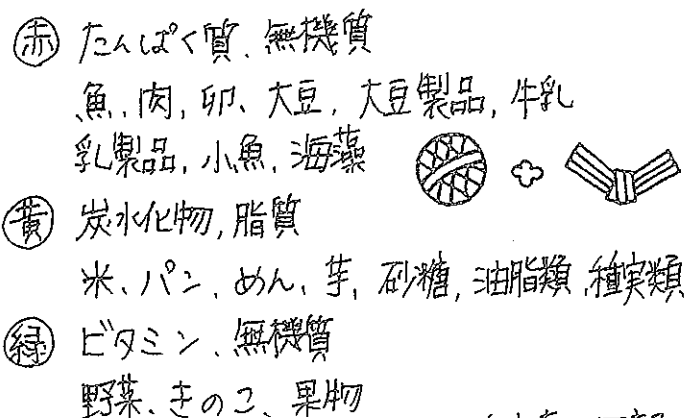 赤 たんぱく質、無機質
魚,肉,卵、大豆,大豆製品,牛乳
乳製品,小魚,海藻
黄 炭水化物,脂質
米、パン、めん、芋,砂糖,油脂類,種実類
緑 ビタミン、無機質
野菜、きのこ、果物